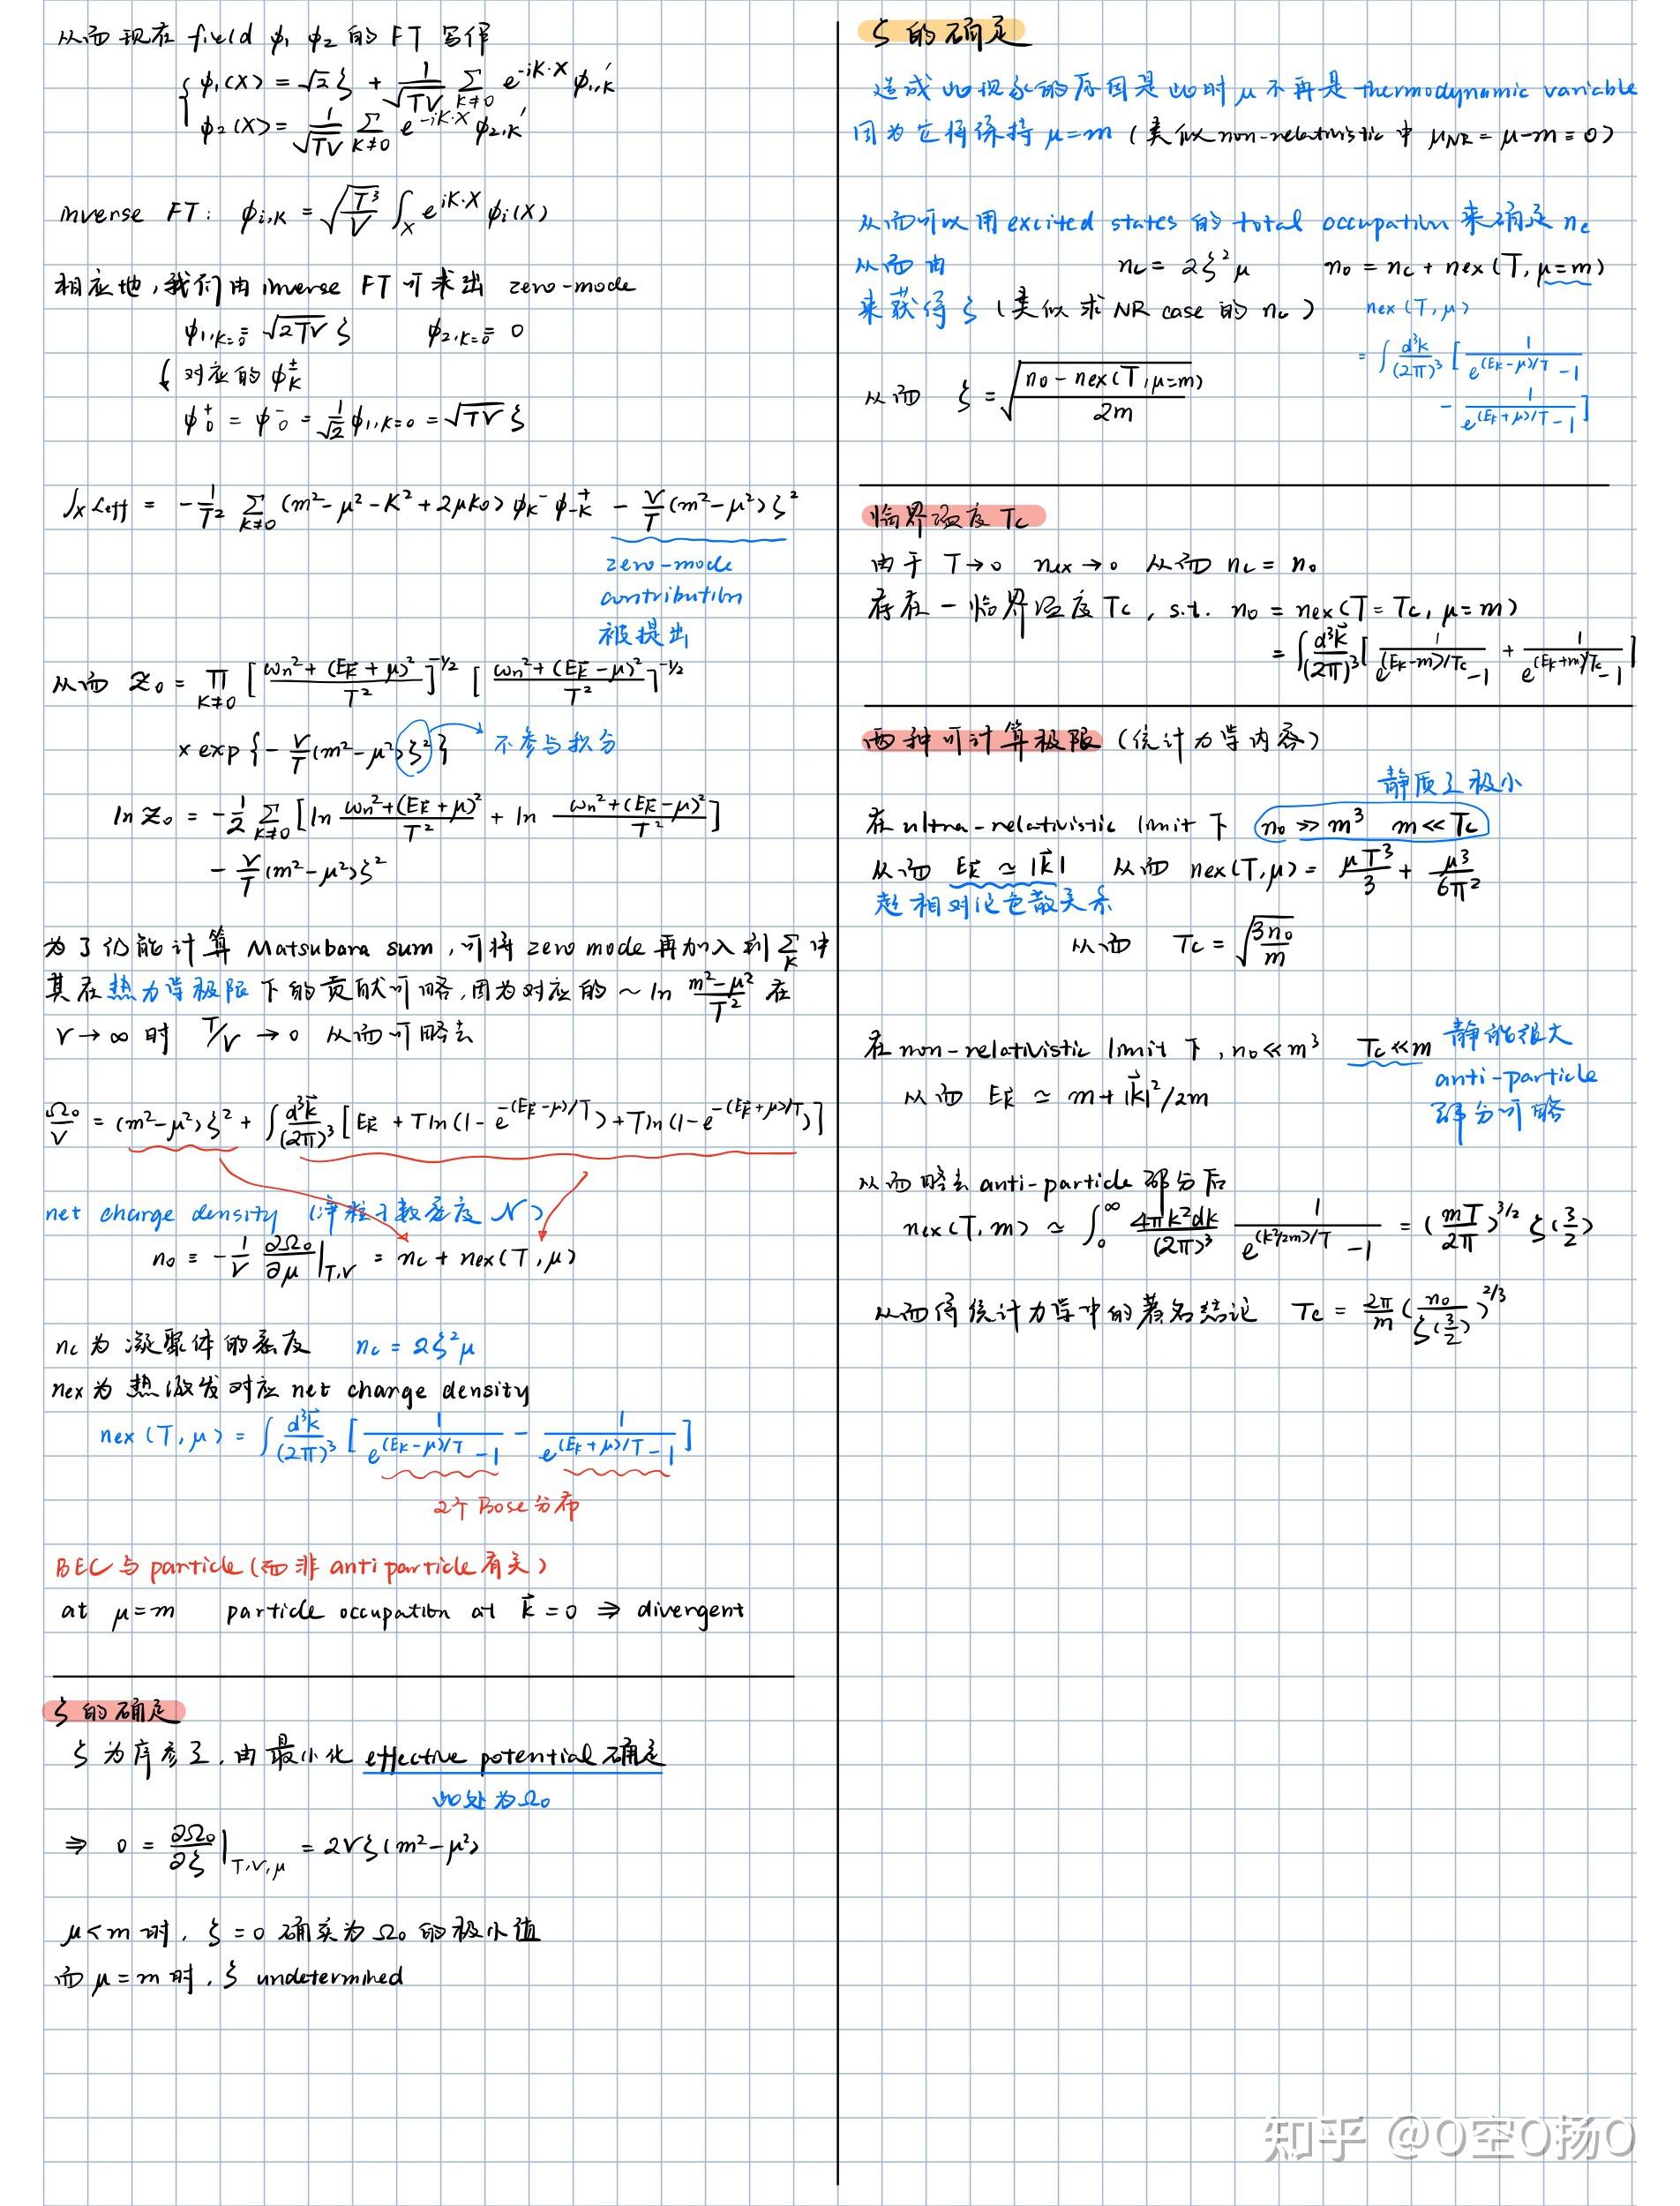 从而现在 field ϕ₁ ϕ₂ 的 FT 写作
{ ϕ₁(X) = √2 ζ + 1/√(TV) Σ_{K≠0} e^{-iK·X} ϕ₁,ₖ'
ϕ₂(X) = 1/√(TV) Σ_{K≠0} e^{-iK·X} ϕ₂,ₖ'
inverse FT: ϕ_{i,K} = √(T³/V) ∫_X e^{iK·X} ϕ_i(X)
相应地,我们由 inverse FT 可求出 zero-mode
ϕ_{1,K=0} = √(2TV) ζ ϕ_{2,K=0} = 0
对应的 ϕ_K^±
ϕ₀⁺ = ϕ₀⁻ = 1/√2 ϕ_{1,K=0} = √(TV) ζ
∫_X L_eff = -1/T² Σ_{K≠0} (m²-μ²-K²+2μk₀) ϕ_K^- ϕ_{-K}^+ - V/T (m²-μ²) ζ²
zero-mode
contribution
被提出
从而 Z₀ = Π_{K≠0} [ (ωn²+(E_k+μ)²)/T² ]^{-1/2} [ (ωn²+(E_k-μ)²)/T² ]^{-1/2}
× exp{ -V/T (m²-μ²) ζ² } 不参与积分
ln Z₀ = -1/2 Σ_{K≠0} [ ln (ωn²+(E_k+μ)²)/T² + ln (ωn²+(E_k-μ)²)/T² ]
- V/T (m²-μ²) ζ²
为了仍能计算 Matsubara sum,可将 zero mode 再加入到 Σ_K 中
其在热力学极限下的贡献可略,因为对应的 ~ ln (m²-μ²)/T² 在
V→∞ 时 T/V → 0 从而可略去
Ω₀/V = (m²-μ²)ζ² + ∫ d³k/(2π)³ [E_k + T ln(1-e^{-(E_k-μ)/T}) + T ln(1-e^{-(E_k+μ)/T})]
net charge density (净粒子数密度 N)
n₀ ≡ -1/V ∂Ω₀/∂μ |_{T,V} = nc + nex(T,μ)
nc 为凝聚体的密度 nc = 2ζ²μ
nex 为热激发对应 net charge density
nex(T,μ) = ∫ d³k/(2π)³ [ 1/(e^{(E_k-μ)/T}-1) - 1/(e^{(E_k+μ)/T}-1) ]
2个 Bose 分布
BEC 与 particle (而非 antiparticle 有关)
at μ=m particle occupation at k=0 ⇒ divergent
ζ 的确定
ζ 为序参量,由最小化 effective potential 确定
此处为 Ω₀
⇒ 0 = ∂Ω₀/∂ζ |_{T,V,μ} = 2Vζ(m²-μ²)
μ<m 时, ζ=0 确实为 Ω₀ 的极小值
而 μ=m 时, ζ undetermined
ζ 的确定
造成此现象的原因是此时 μ 不再是 thermodynamic variable
因为它将保持 μ=m (类似 non-relativistic 中 μ_NR = μ-m = 0)
从而可以用 excited states 的 total occupation 来确定 nc
从而由 nc = 2ζ²μ n₀ = nc + nex(T, μ=m)
来获得 ζ (类似求 NR case 的 nc) nex(T,μ)
= ∫ d³k/(2π)³ [ 1/(e^{(E_k-μ)/T}-1)
- 1/(e^{(E_k+μ)/T}-1) ]
从而 ζ = √( (n₀ - nex(T,μ=m)) / 2m )
临界温度 Tc
由于 T→0 nex→0 从而 nc = n₀
存在一临界温度 Tc, s.t. n₀ = nex(T=Tc, μ=m)
= ∫ d³k/(2π)³ [ 1/(e^{(E_k-m)/Tc}-1) + 1/(e^{(E_k+m)/Tc}-1) ]
两种可计算极限 (统计力学内容)
静质量极小
在 ultra-relativistic limit 下 n₀ ≫ m³ m ≪ Tc
从而 E_k ≃ |k| 从而 nex(T,μ) = μT³/3 + μ³/6π²
超相对论色散关系
从而 Tc = √(3n₀/m)
在 non-relativistic limit 下, n₀ ≪ m³ Tc ≪ m 静能很大
anti-particle
部分可略
从而 E_k ≃ m + |k|²/2m
从而略去 anti-particle 部分后
nex(T,m) ≃ ∫₀^∞ 4πk²dk/(2π)³ 1/(e^{(k²/2m)/T}-1) = (mT/2π)^{3/2} ζ(3/2)
从而得统计力学中的著名结论 Tc = 2π/m (n₀/ζ(3/2))^{2/3}
知乎 @O空O扬O